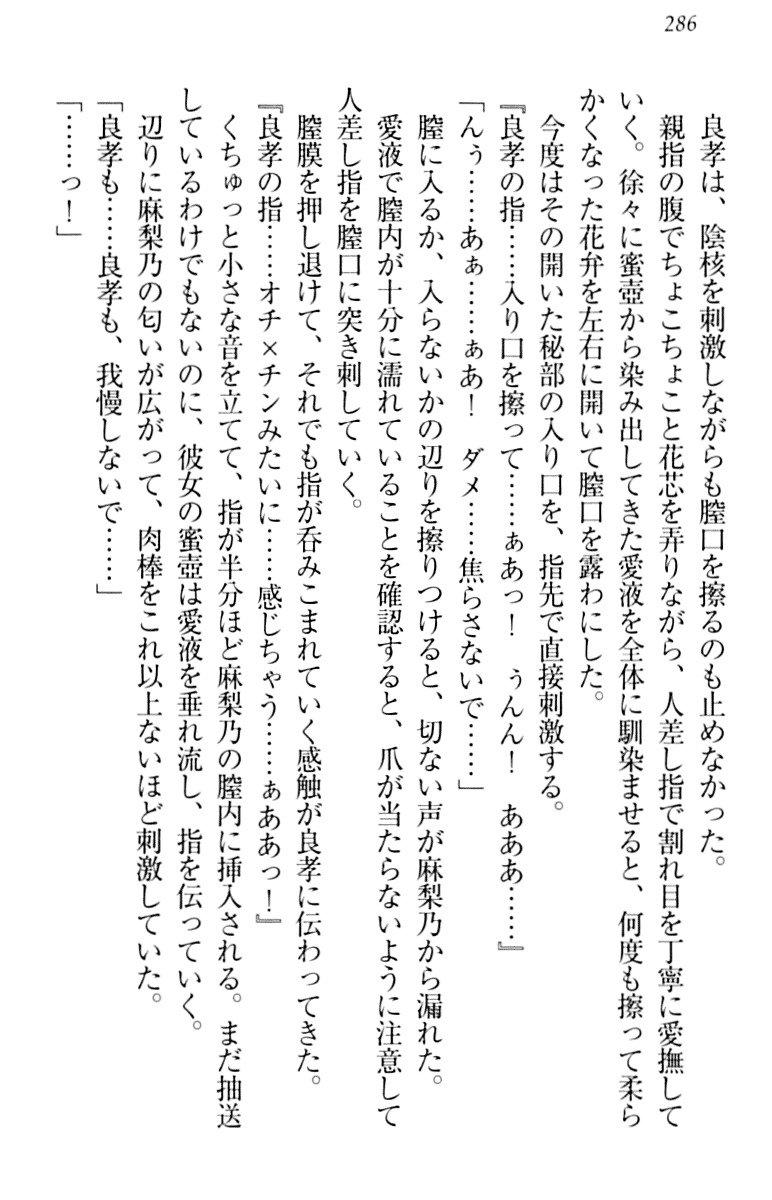 286
良孝は、陰核を刺激しながらも膣口を擦るのも止めなかった。
親指の腹でちょこちょこと花芯を弄りながら、人差し指で割れ目を丁寧に愛撫して
いく。徐々に蜜壺から染み出してきた愛液を全体に馴染ませると、何度も擦って柔ら
かくなった花弁を左右に開いて膣口を露わにした。
今度はその開いた秘部の入り口を、指先で直接刺激する。
『良孝の指……入り口を擦って……ぁあっ！　ぅんん！　あああ……』
「んぅ……あぁ……ぁあ！　ダメ……焦らさないで……」
膣に入るか、入らないかの辺りを擦りつけると、切ない声が麻梨乃から漏れた。
愛液で膣内が十分に濡れていることを確認すると、爪が当たらないように注意して
人差し指を膣口に突き刺していく。
膣膜を押し退けて、それでも指が呑みこまれていく感触が良孝に伝わってきた。
『良孝の指……オチ×チンみたいに……感じちゃう……ぁああっ！』
くちゅっと小さな音を立てて、指が半分ほど麻梨乃の膣内に挿入される。まだ抽送
しているわけでもないのに、彼女の蜜壺は愛液を垂れ流し、指を伝っていく。
辺りに麻梨乃の匂いが広がって、肉棒をこれ以上ないほど刺激していた。
「良孝も……良孝も、我慢しないで……」
「……っ！」